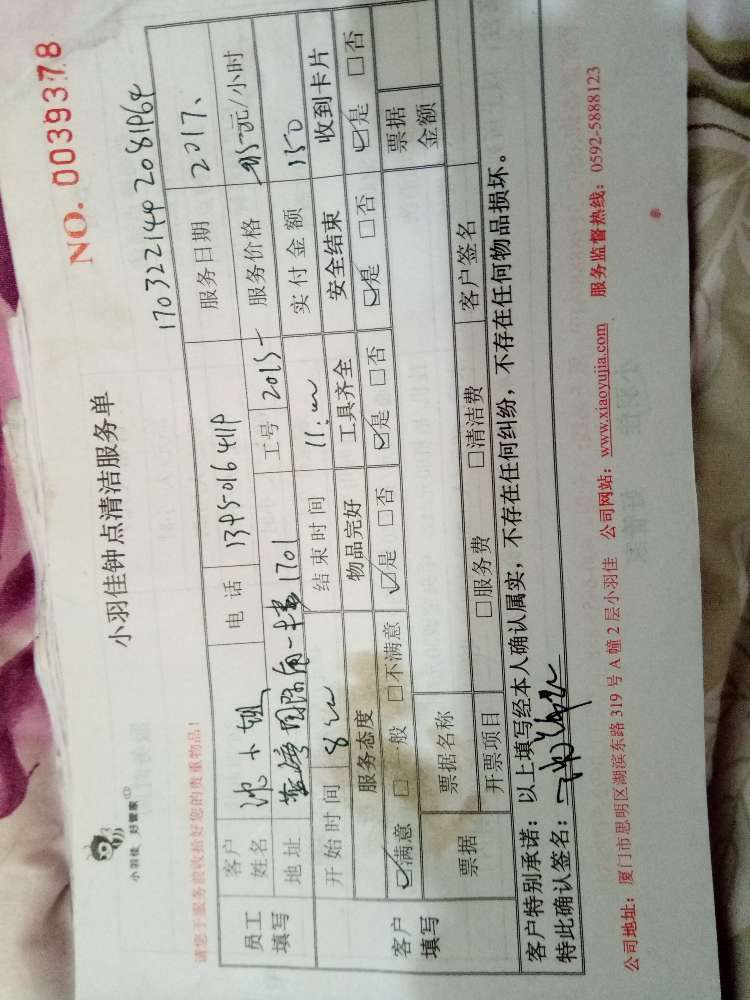 小羽佳 好管家
小羽佳钟点清洁服务单
NO. 0039378
请您于服务前收拾好您的贵重物品!
170322144 2081964
员工填写 客户姓名 沈小姐 电话 服务日期 2017、
地址 国际 一 1701 工号 2015 服务价格 元/小时
开始时间 8:00 结束时间 11:00 实付金额 150
客户填写 服务态度 物品完好 工具齐全 安全结束 收到卡片
☑满意 □一般 □不满意 ☑是 □否 ☑是 □否 ☑是 □否 ☑是 □否
票据 票据名称 票据金额
开票项目 □服务费 □清洁费 客户签名
客户特别承诺:以上填写经本人确认属实,不存在任何纠纷,不存在任何物品损坏。
特此确认签名:
公司地址:厦门市思明区湖滨东路 319 号 A 幢 2 层小羽佳 公司网站:www.xiaoyujia.com 服务监督热线:0592-5888123